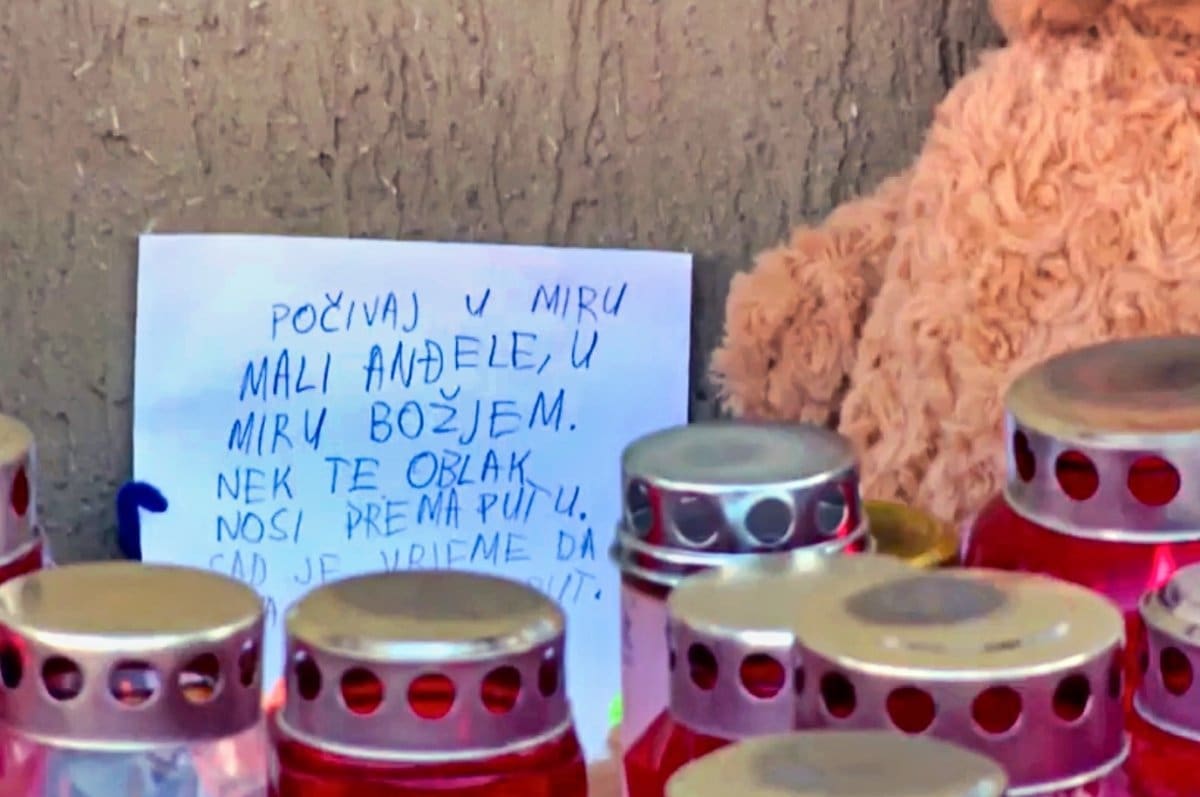 POČIVAJ U MIRU
MALI ANĐELE, U
MIRU BOŽJEM.
NEK TE OBLAK
NOSI PREMA PUTU.
SAD JE VRIJEME DA
PUT.